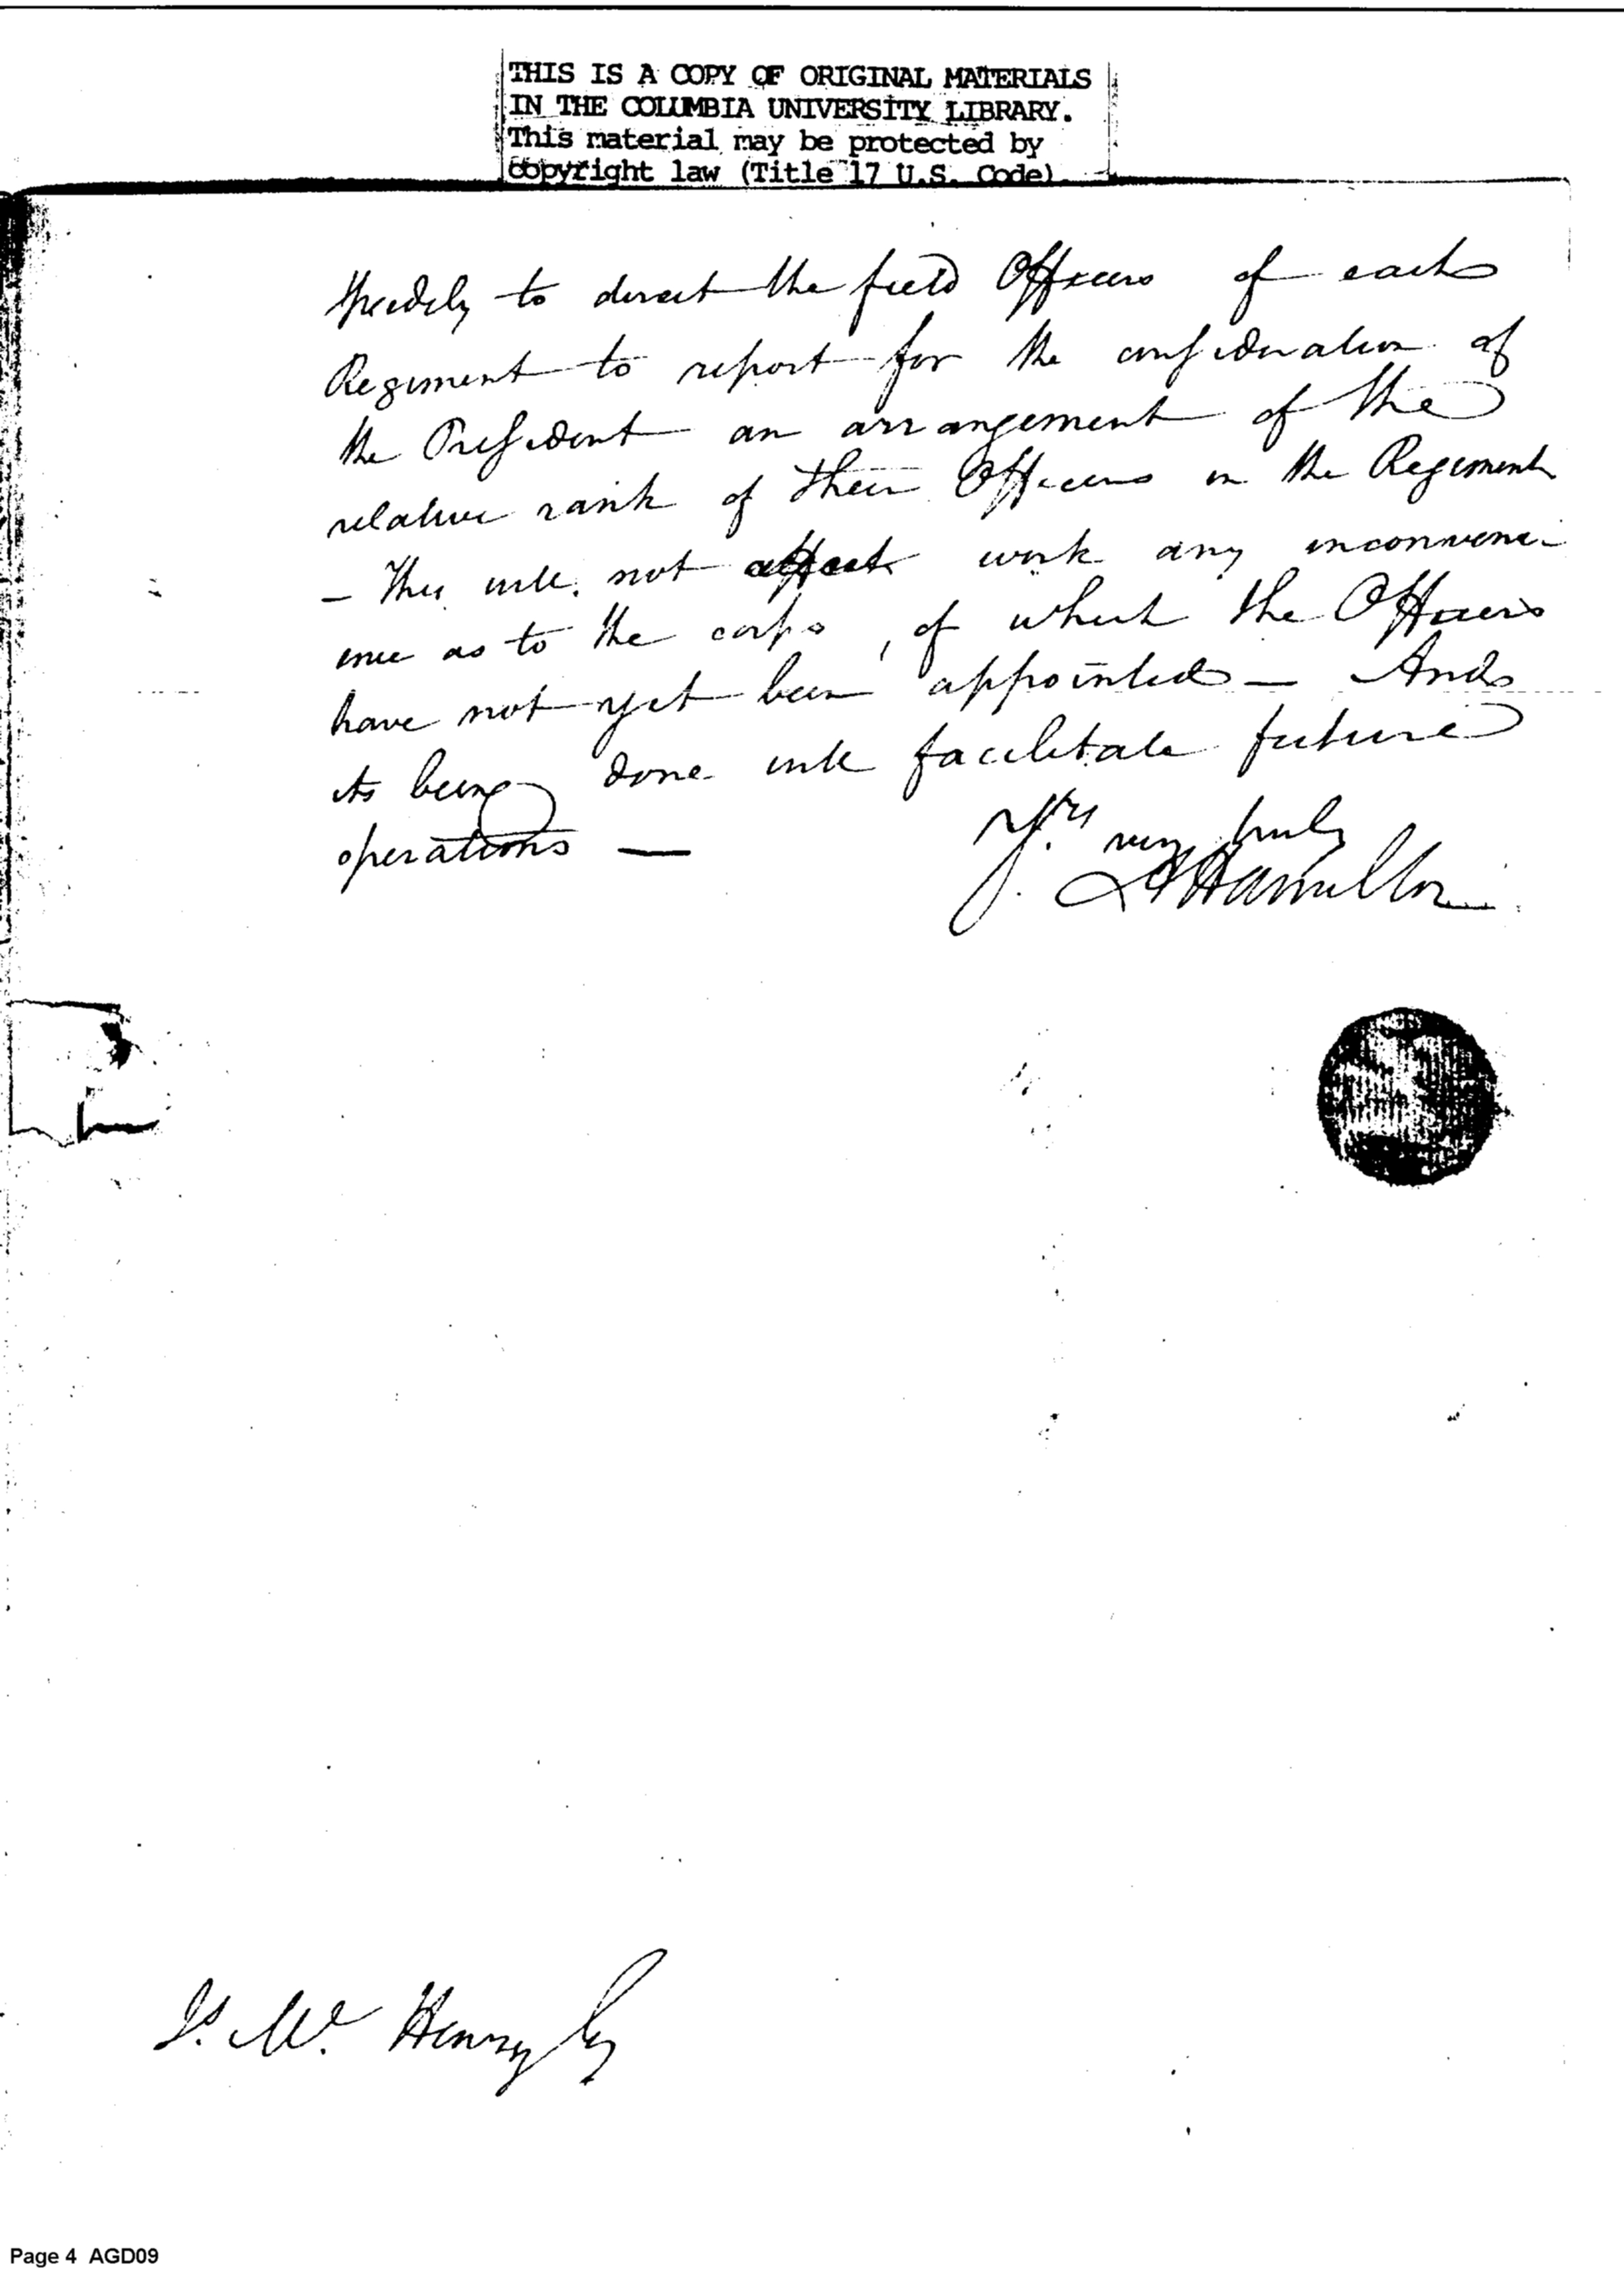 THIS IS A COPY OF ORIGINAL MATERIALS
IN THE COLUMBIA UNIVERSITY LIBRARY.
This material may be protected by
copyright law (Title 17 U.S. Code)
speedily to direct the field Officers of each
Regiment to report for the consideration of
the President an arrangement of the
relative rank of their Officers in the Regiment
— This will not affect work any inconveni-
ence as to the corps, of which the Officers
have not yet been appointed — And
its being done will facilitate future
operations —
Yrs. very truly
A Hamilton
Js. Mc. Henry Esq
Page 4 AGD09